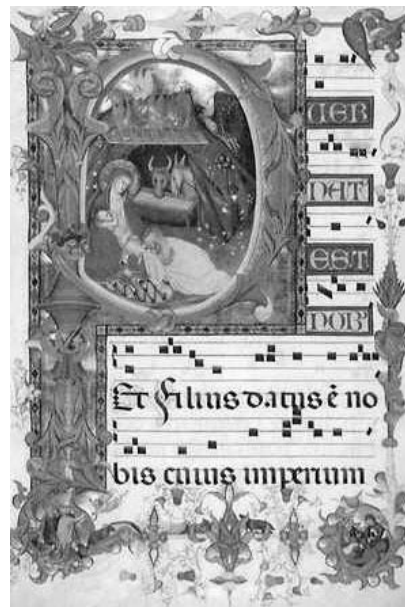 PUER
NAT'
EST
NOB'
Et filius datus ẽ no
bis cuius imperium